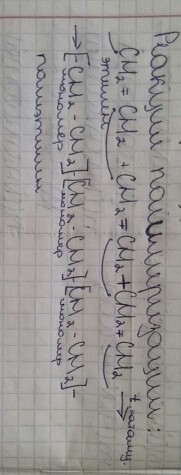 Реакции полимеризации:
CH₂ = CH₂ + CH₂ = CH₂ + CH₂ = CH₂ t, катализ. →
этилен
→ [-CH₂ - CH₂]-[CH₂ - CH₂]-[CH₂ - CH₂]-
мономер мономер мономер
полиэтилен